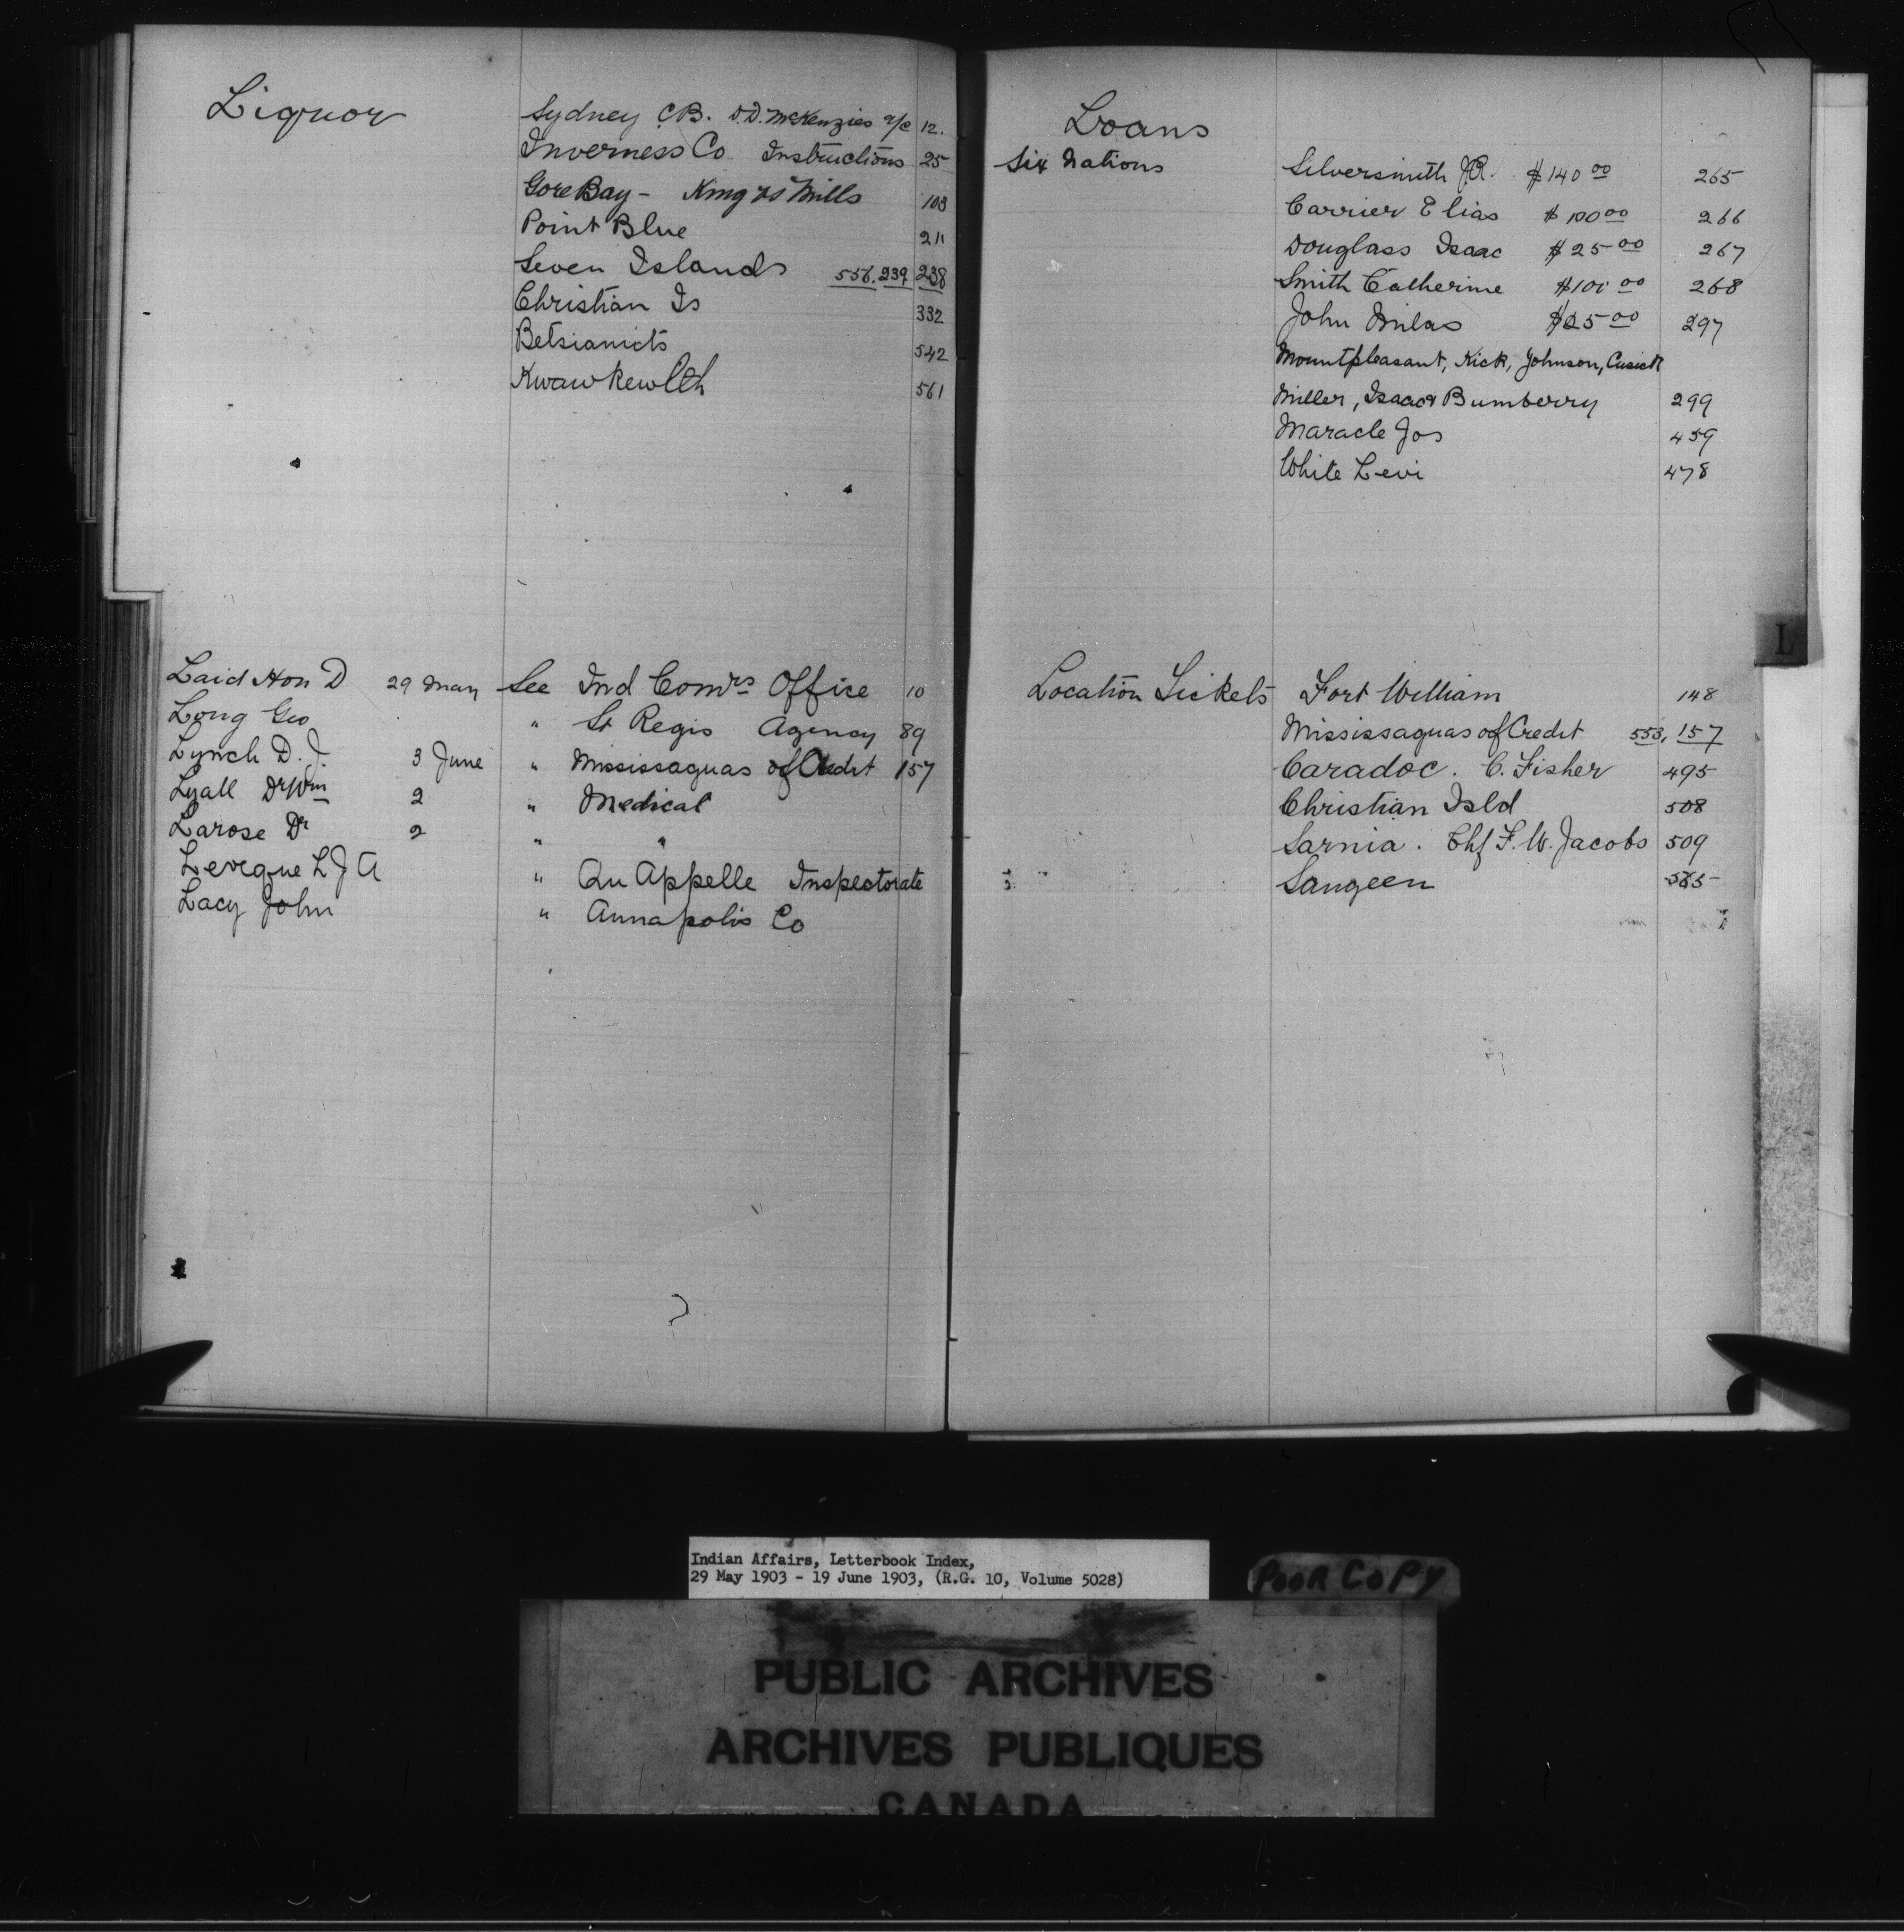 Liquor
Sydney C.B. D.D. McKenzies a/c 12.
Inverness Co Instructions 25
Gore Bay - King vs Mills 103
Point Blue 211
Seven Islands 556. 239 238
Christian Is 332
Betsiamits 542
Kwawkewlth 561
Laid Hon D 29 May See Ind Comrs Office 10
Long Geo " St Regis Agency 89
Lynch D. J. 3 June " Mississaguas of Credit 157
Lyall Dr Wm 2 " Medical
Larose Dr 2 " "
Levecque L J A " Qu Appelle Inspectorate
Lacy John " Annapolis Co
Loans
Six Nations Silversmith J.R. $140 00 265
Carrier Elias $100 00 266
Douglass Isaac $25 00 267
Smith Catherine $100 00 268
John Milas $25 00 297
Mountpleasant, Kick, Johnson, Cusick
Miller, Isaac & Bumberry 299
Maracle Jos 459
White Levi 478
L
Location Tickets Fort William 148
Mississaguas of Credit 553, 157
Caradoc. C. Fisher 495
Christian Isld 508
Sarnia. Chf F. W. Jacobs 509
Saugeen 565
Indian Affairs, Letterbook Index,
29 May 1903 - 19 June 1903, (R.G. 10, Volume 5028)
POOR COPY
PUBLIC ARCHIVES
ARCHIVES PUBLIQUES
CANADA